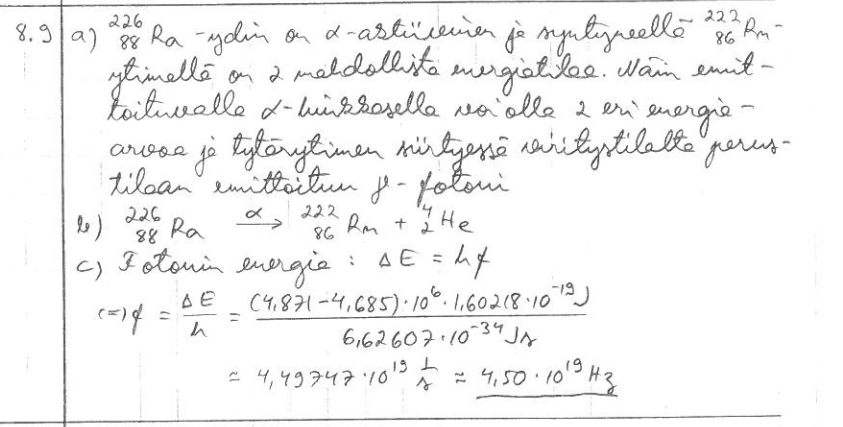 8.9 a) ²²⁶₈₈Ra -ydin on α-aktiivinen ja syntyneellä ²²²₈₆Rn-
ytimellä on 2 mahdollista energiatilaa. Näin emit-
toituvalla α-hiukkasella voi olla 2 eri energia-
arvoa ja tytärytimen siirtyessä viritystilalta perus-
tilaan emittoituu γ-fotoni
b) ²²⁶₈₈Ra α→ ²²²₈₆Rn + ⁴₂He
c) Fotonin energia : ΔE = hf
(=) f = ΔE/h = (4,871-4,685)·10⁶·1,60218·10⁻¹⁹J / 6,62607·10⁻³⁴Js
≈ 4,49747·10¹⁹ 1/s ≈ 4,50·10¹⁹Hz